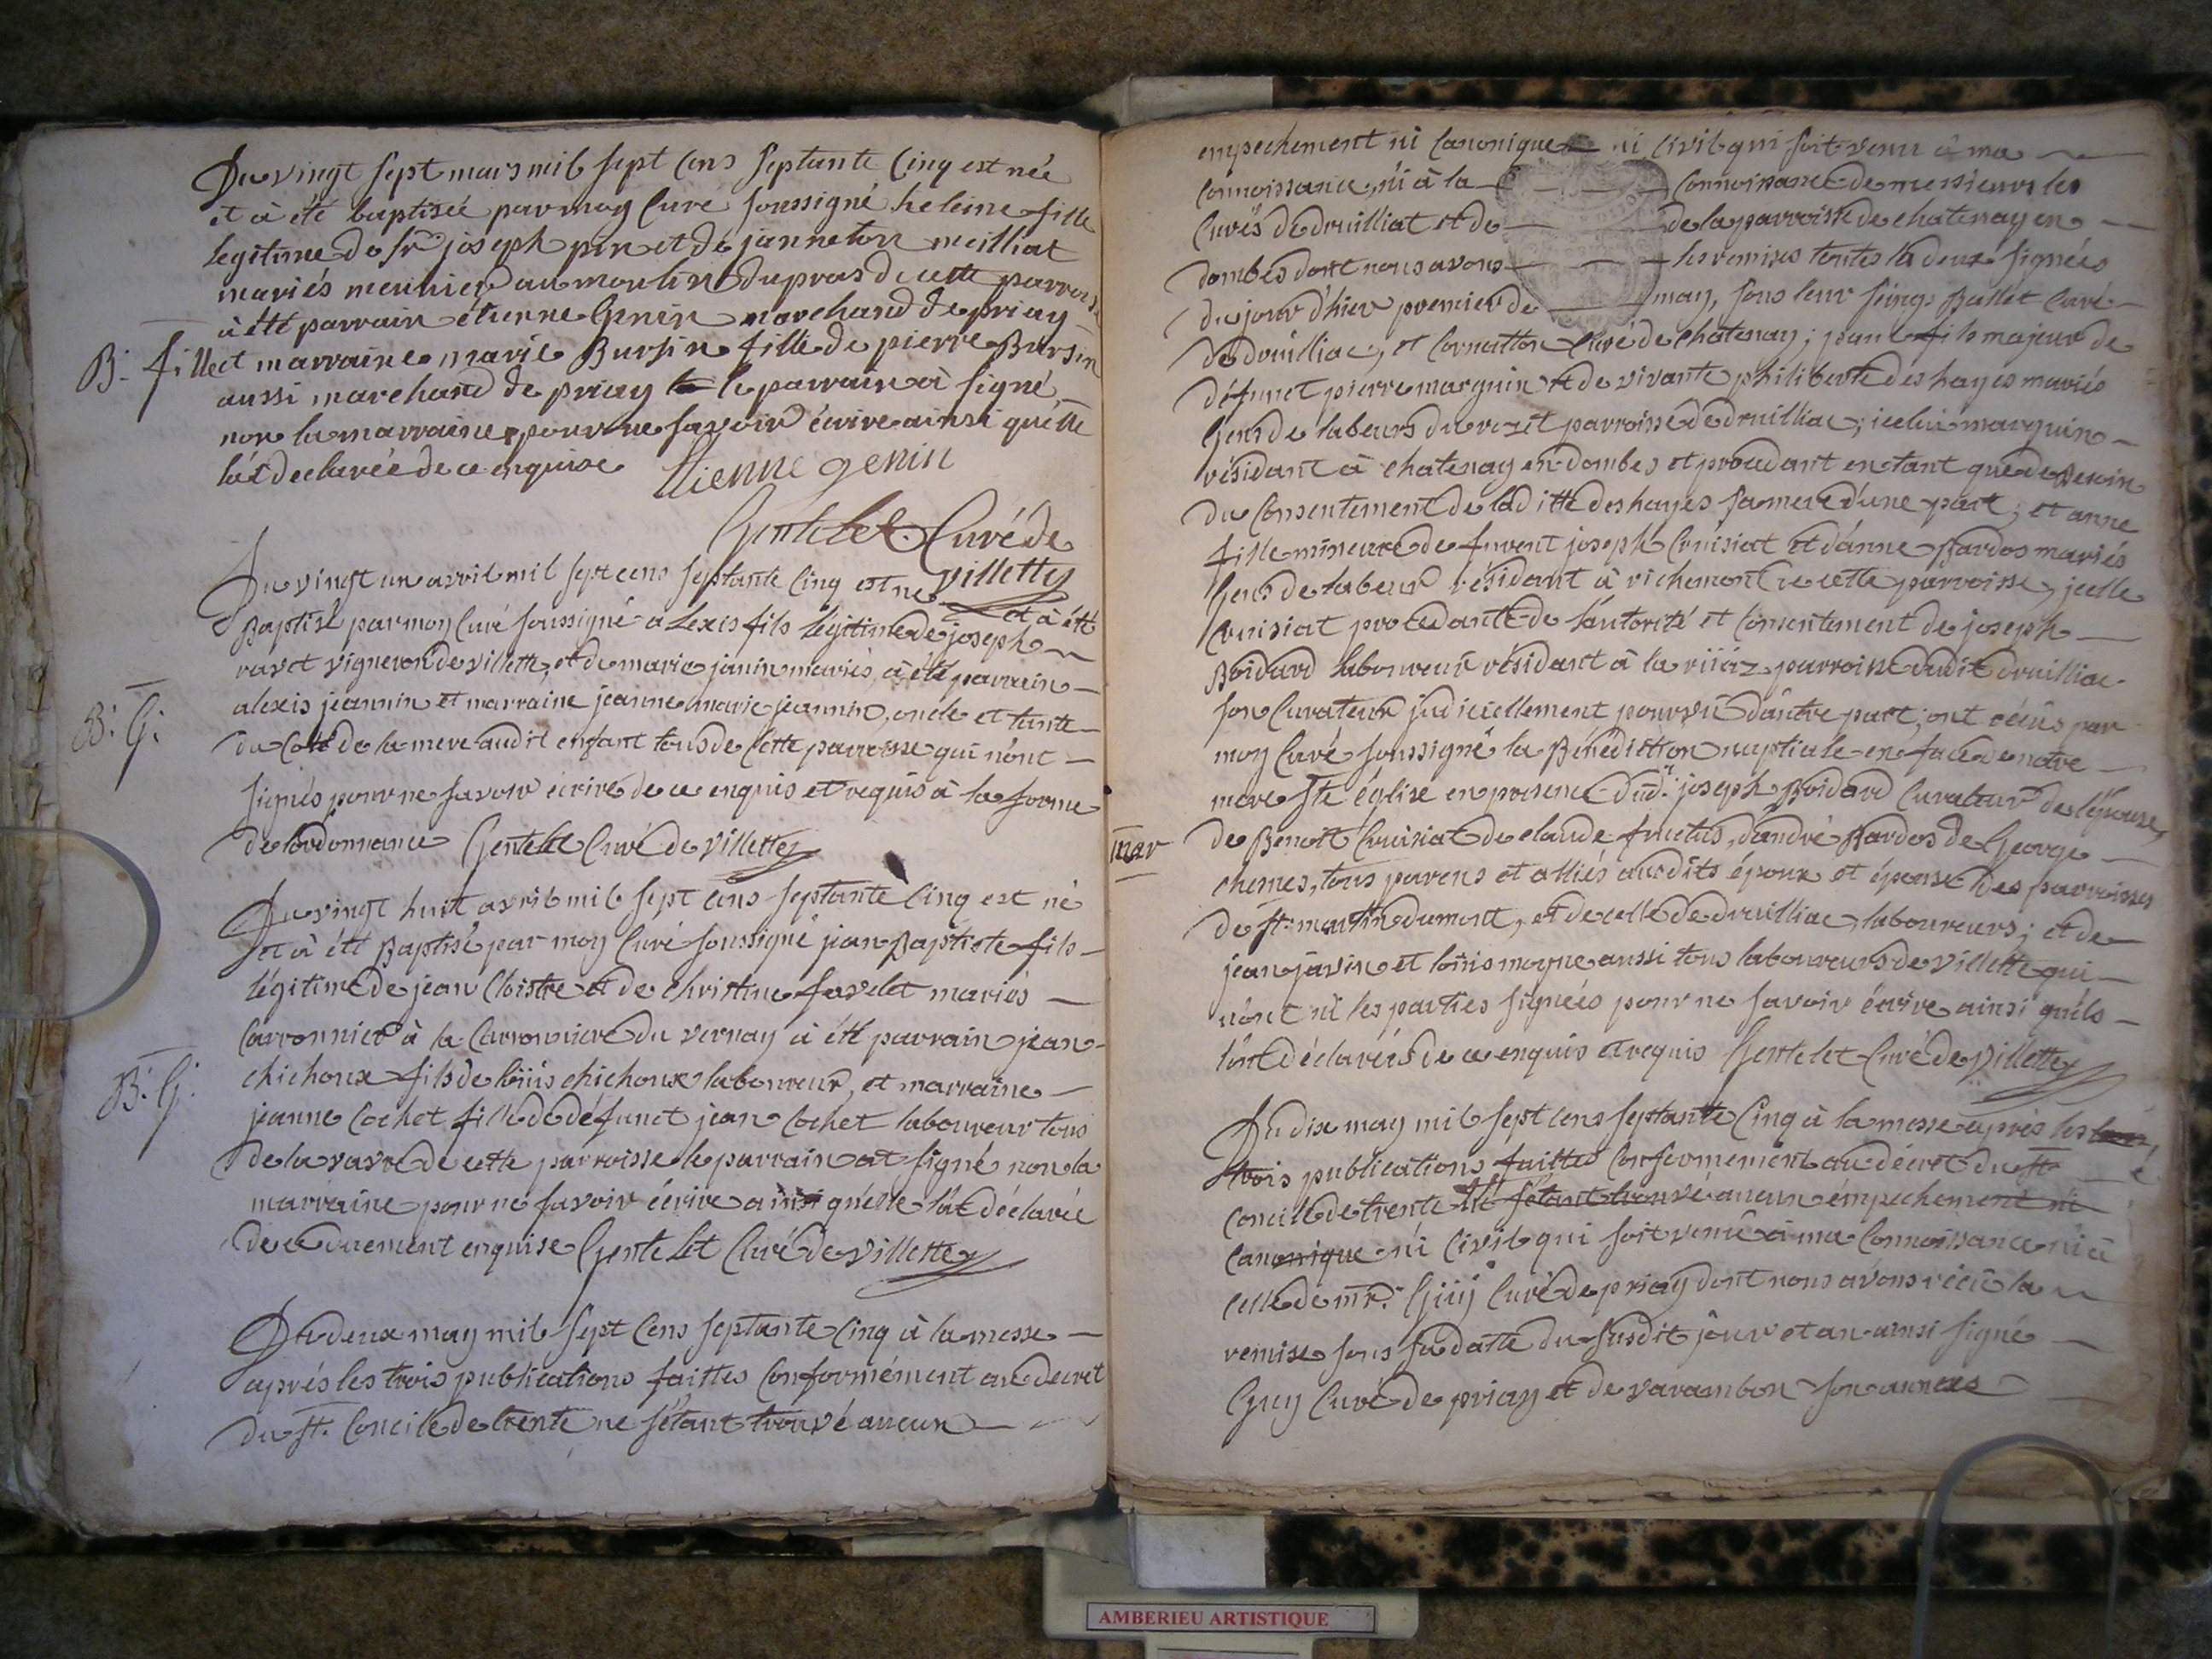 Du vingt sept mars mil sept cens septante cinq est née
et à été baptisée par moy curé soussigné heleine fille
legitime de sr. joseph pin et de janneton meilliat
mariés meunier au moulin du pras de cette parroisse
à été parrain étienne Genin marchand de priay
B. fille et marraine marie Bursin fille de pierre Bursin
aussi marchand de priay le parrain à signé
non la marraine pour ne savoir écrire ainsi qu'elle
l'at declarée de ce enquise Etienne genin
Gentelet Curé de
villette
Du vingt un avril mil sept cens septante cinq est né et à été
Baptisé par moy Curé soussigné alexis fils légitime de joseph
ravet vigneron de villette, et de marie janin mariés, à été parrain
alexis jeannin et marraine jeanne marie jeannin, oncle et tante
B. G.
du coté de la mere audit enfant tous de cette parroisse qui n'ont
signés pour ne savoir écrire de ce enquis et requis à la forme
de l'ordonnance Gentelet Curé de villette
Du vingt huit avril mil sept cens septante cinq est né
et à été Baptisé par moy Curé soussigné jean Baptiste fils
légitime de jean Cloistre et de christine favelet mariés
carronnier à la carronniere du vernay à été parrain jean
B. G.
chichoux fils de loüis chichoux laboureur, et marraine
jeanne Cochet fille de défunct jean Cochet laboureur tous
de la vavre de cette parroisse le parrain at signé non la
marraine pour ne savoir écrire ainsi qu'elle l'at déclarée
de ce duement enquise Gentelet Curé de villette
Du deux may mil sept cens septante cinq à la messe
aprés les trois publications faittes conformément au decret
du st. Concile de trente ne s'étant trouvé aucun
empechement ni canonique ni civil qui soit venu à ma
connoissance, ni à la connoissance de messieurs les
Curés de druilliat et de de la parroisse de chatenay en
dombes dont nous avons les remises toutes les deux signées
du jour d'hier premier de may, sous leur seings Ballet Curé
de druilliac, et Cornatton Curé de chatenay; paul fils majeur de
défunct pierre marguin et de vivante philiberte deshayes mariés
Gens de labeurs du parroisse de druilliac; icelui marguin
résidant à chatenay en dombes et procedant en tant que de Besoin
du consentement de laditte deshayes sa mere d'une part; et anne
fille mineure de furent joseph Cruisiat et d'anne Bardos mariés
Gens de labeur résidant à richemont de cette parroisse, jcelle
Cruisiat procedante de l'autorité et consentement de joseph
Boidard laboureur résidant à la parroisse dudit druilliac
son Curateur judiciellement pourvû d'autre part; ont réçûs par
moy Curé soussigné la Bénédiction nuptiale en face de notre
mere ste église en presence dud. joseph Boidard Curateur de l'épouse,
mar
de Benoit Cruisiat de claude fructus, d'andré Bardos de George
chesnes, tous parens et alliés audits époux et épouse des parroisses
de st. martin dumont, et de celle de druilliac, laboureurs; et de
jean javin et loüis moyne aussi tous laboureurs de villette qui
n'ont ni les parties signées pour ne savoir écrire ainsi qu'ils
l'ont déclarées de ce enquis et requis Gentelet Curé de villette
Du dix may mil sept cens septante cinq à la messe aprés les
trois publications faittes conformément au décret du st.
concile de trente ne s'étant trouvé aucun émpechement ni
canonique ni civil qui soit venu à ma connoissance ni à
celle de mr. Guy Curé de priay dont nous avons récû la
remise sous sa datte du susdit jour et an ainsi signé
Guy Curé de priay et de varambon son annexe
AMBERIEU ARTISTIQUE